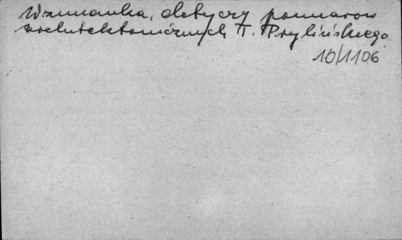 Wzmianka, dotyczy pomiarów
architektonicznych T. Prylińskiego
10/1106